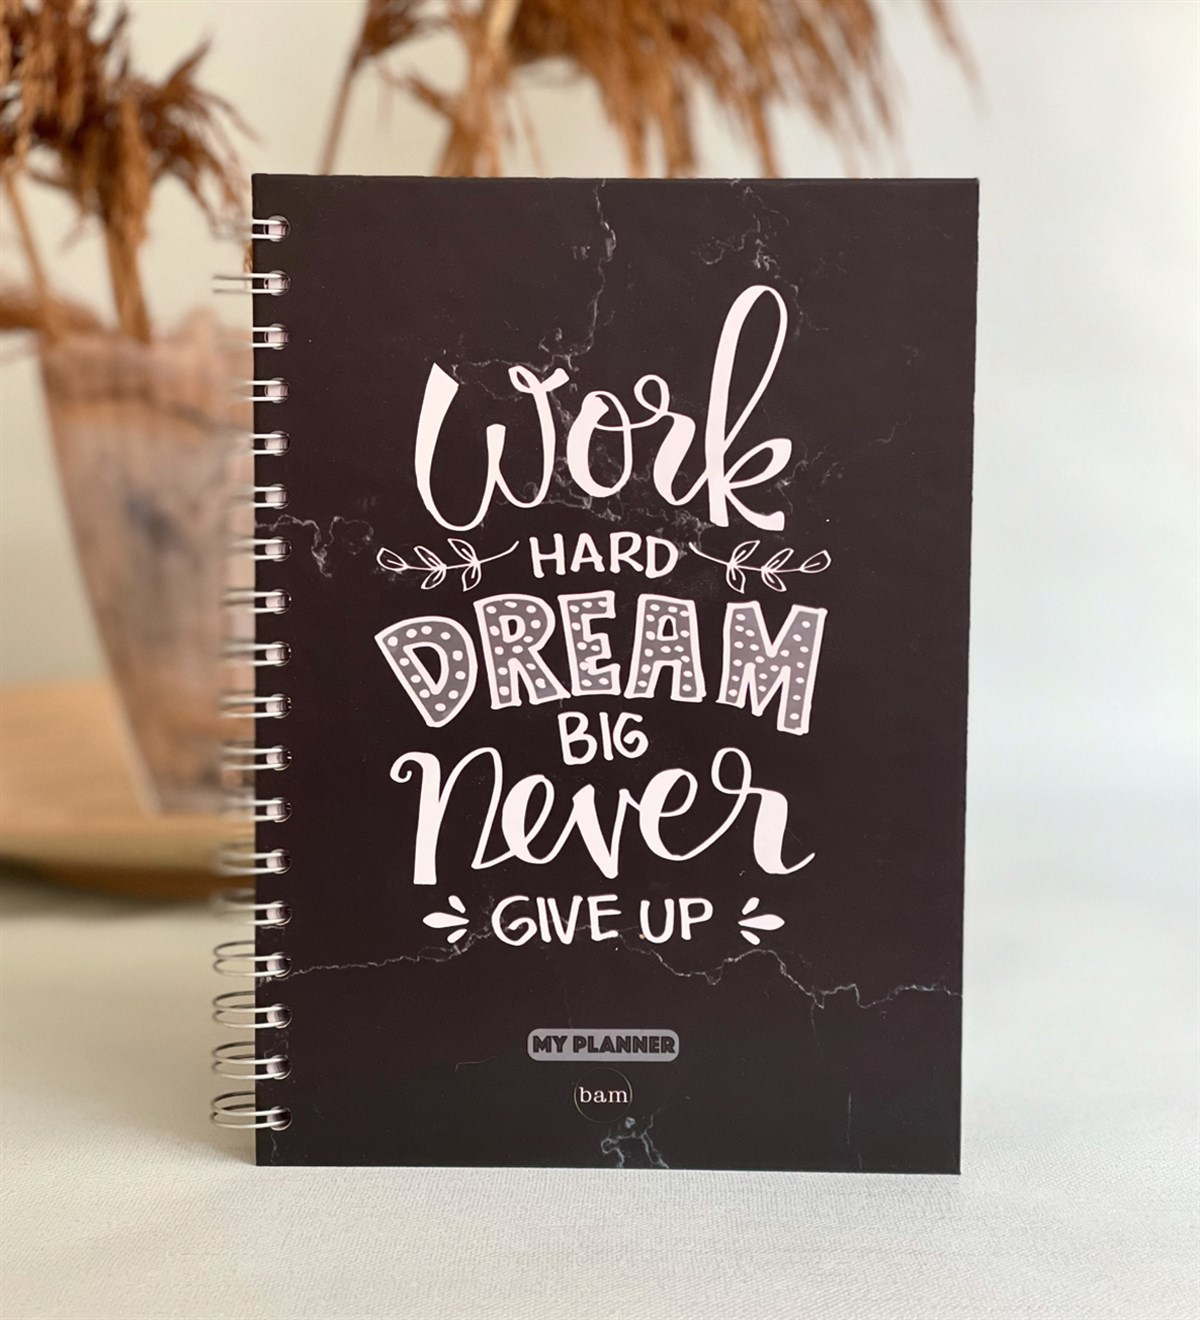 Work
HARD
DREAM
BIG
Never
GIVE UP
MY PLANNER
bam